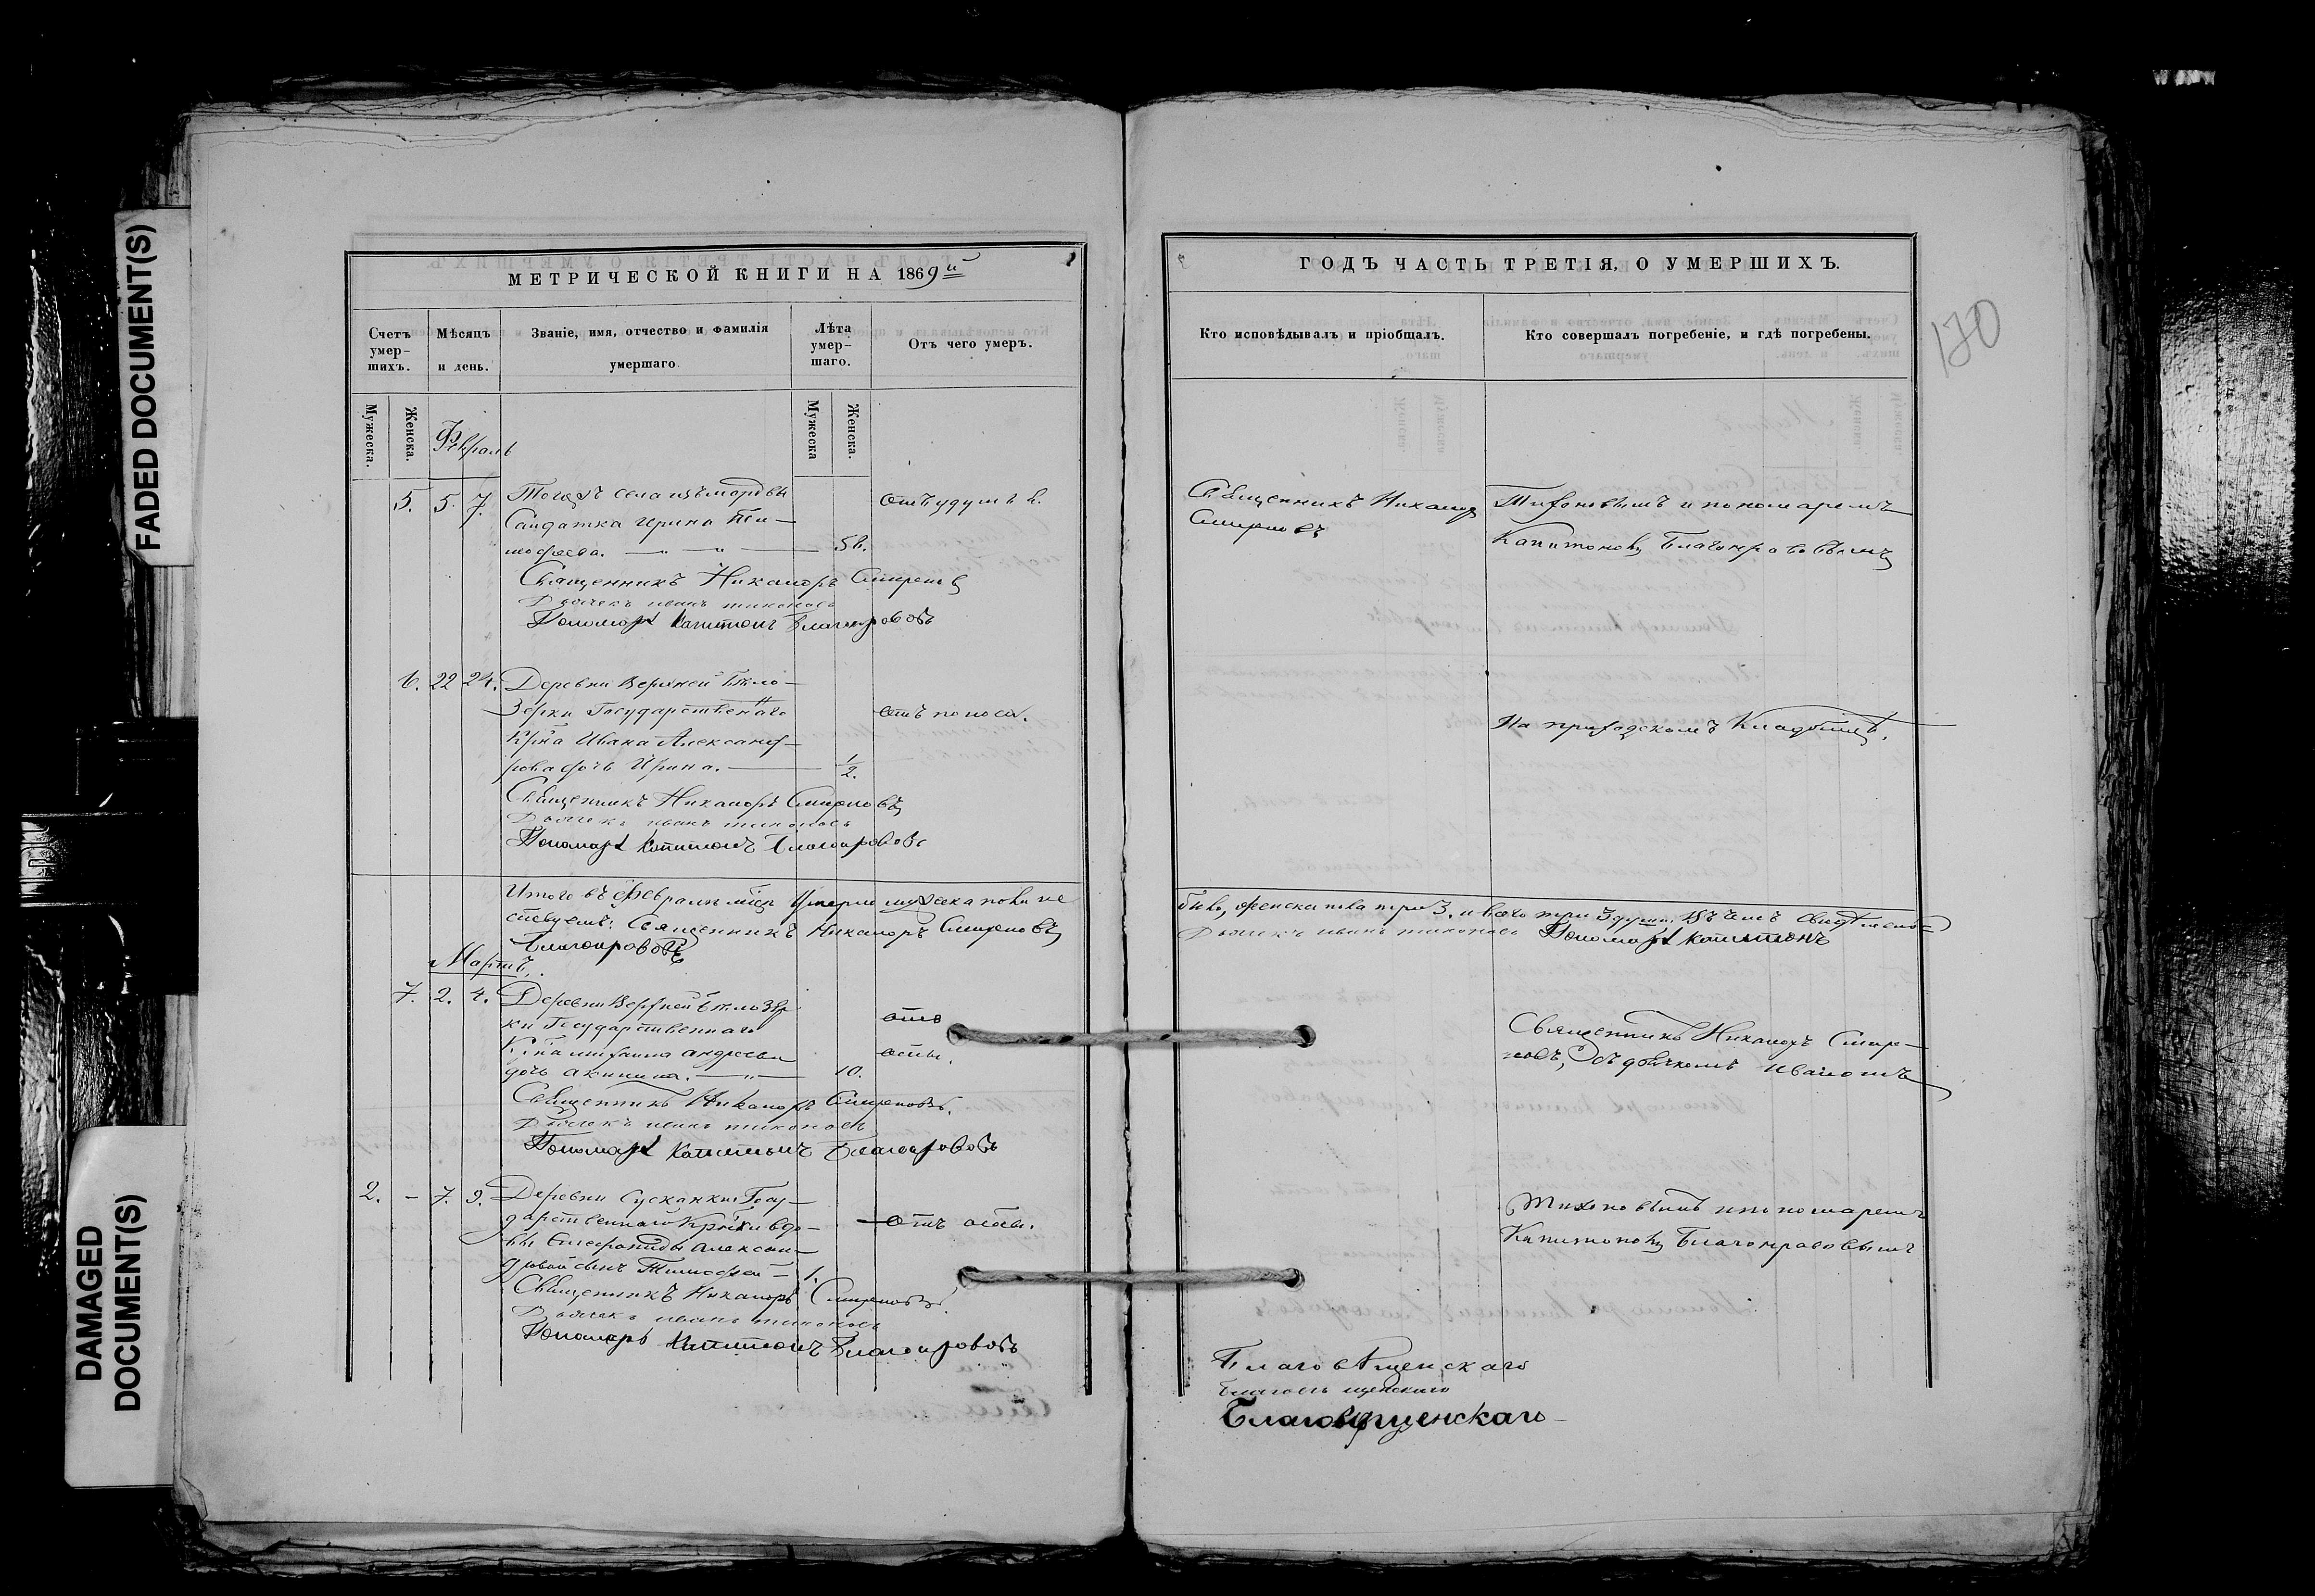 FADED DOCUMENT(S)
DAMAGED
DOCUMENT(S)
МЕТРИЧЕСКОЙ КНИГИ НА 1869й
Счетъ умер-шихъ.
Мѣсяцъ и день.
Званіе, имя, отчество и фамилія умершаго
Лѣта умер-шаго.
Отъ чего умеръ.
Мужеска.
Женска.
Февраль
Мужеска
Женска.
5. 5. 7. Тогожъ села изъ мордвы
Салдатка Ирина Тим-
офеева. 56.
отъ удушья.
Священникъ Никаноръ Смирновъ
Дьячекъ Иванъ Тихоновъ
Пономарь Капитонъ Благонравовъ
6. 22 24. Деревни Верхней Бѣло-
зерки Государственнаго
Крна Ивана Александ-
рова дочь Ирина. 1/2.
отъ поноса.
Священникъ Никаноръ Смирновъ
Дьячекъ Иванъ Тихоновъ
Пономарь Капитонъ Благонравовъ
Итого въ Февралѣ мцѣ умерло мужеска пола не
Священникъ Никаноръ Смирновъ
Благонравовъ
Мартъ
7. 2. 4. Деревни Верхней Бѣлозер
ки Государственнаго
Крна Андреева
дочь Акилина. 10.
отъ
оспы.
Священникъ Никаноръ Смирновъ.
Дьячекъ Иванъ Тихоновъ
Пономарь Капитонъ Благонравовъ
2. – 7. 9. Деревни Сусканки Госу-
дарственной Крнки вдо-
вы Александ-
ровой сынъ Тимофей – 1.
отъ оспы.
Священникъ Никаноръ Смирновъ.
Дьячекъ Иванъ Тихоновъ
Пономарь Капитонъ Благонравовъ
ГОДЪ ЧАСТЬ ТРЕТІЯ, О УМЕРШИХЪ.
170
Кто исповѣдывалъ и пріобщалъ.
Кто совершалъ погребеніе, и гдѣ погребены.
Священникъ Никаноръ
Смирновъ
Тихоновымъ и пономаремъ
Капитономъ Благонравовымъ
На приходскомъ Кладбищѣ.
было, женска пола три 3. и всего три 3 души. Въ чемъ
Дьячекъ Иванъ Тихоновъ Пономарь Капитонъ
Священникъ Никаноръ Смир-
новъ, Съ дьячкомъ Иваномъ
Тихоновымъ и пономаремъ
Капитономъ Благонравовымъ
Благовѣщенскаго
Благовѣщенскаго
Благовѣщенскаго